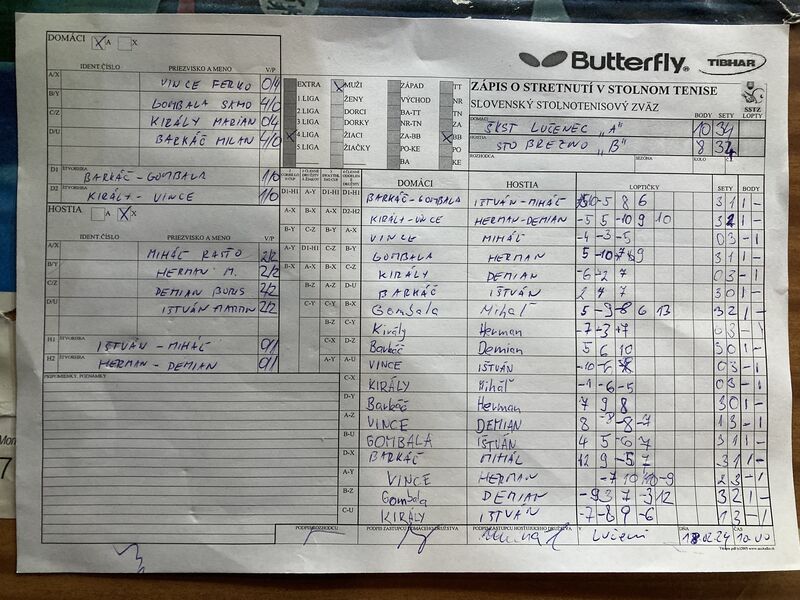 DOMÁCI X A X
IDENT.ČÍSLO PRIEZVISKO A MENO V/P
A/X VINCE FERKO 0/4
B/Y GOMBALA SAMO 4/0
C/Z KIRÁLY MARIAN 0/4
D/U BARKÁČ MILAN 4/0
D1 ŠTVORHRA BARKÁČ - GOMBALA 1/0
D2 ŠTVORHRA KIRÁLY - VINCE 1/0
HOSTIA A X X
IDENT.ČÍSLO PRIEZVISKO A MENO V/P
A/X MIHÁĽ RASŤO 2/2
B/Y HERMAN M. 2/2
C/Z DEMIAN BORIS 2/2
D/U IŠTVÁN MARTIN 2/2
H1 ŠTVORHRA IŠTVÁN - MIHÁĽ 0/1
H2 ŠTVORHRA HERMAN - DEMIAN 0/1
PRIPOMIENKY, POZNÁMKY
Butterfly TIBHAR
EXTRA MUŽI ZÁPAD TT
1 LIGA ŽENY VÝCHOD NR
2 LIGA DORCI BA-TT TN
3 LIGA DORKY NR-TN ZA
4 LIGA ŽIACI ZA-BB BB
5 LIGA ŽIAČKY PO-KE PO
BA KE
ZÁPIS O STRETNUTÍ V STOLNOM TENISE
SLOVENSKÝ STOLNOTENISOVÝ ZVÄZ
SSTZ
DOMÁCI BODY SETY LOPTY
ŠKST LUČENEC „A“ 10 34
HOSTIA STO BREZNO „B“ 8 32
ROZHODCA SEZÓNA KOLO
DOMÁCI HOSTIA LOPTIČKY SETY BODY
D1-H1 BARKÁČ-GOMBALA IŠTVÁN-MIHÁĽ 10 -5 8 6 3 1 1 -
D2-H2 KIRÁLY-VINCE HERMAN-DEMIAN -5 5 -10 9 10 3 2 1 -
A-X VINCE MIHÁĽ -4 -3 -5 0 3 - 1
B-Y GOMBALA HERMAN 5 -10 7 9 3 1 1 -
C-Z KIRÁLY DEMIAN -6 -2 7 0 3 - 1
D-U BARKÁČ IŠTVÁN 2 4 7 3 0 1 -
B-X Gombala Mihaľ 5 -9 -8 6 13 3 2 1 -
C-Y Király Herman -7 -3 -7 0 3 - 1
D-Z Barkáč Demian 5 6 10 3 0 1 -
A-U VINCE IŠTVÁN -10 -6 -8 0 3 - 1
C-X KIRÁLY Mihaľ -1 -6 -5 0 3 - 1
D-Y Barkáč Herman 7 9 8 3 0 1 -
A-Z VINCE DEMIAN 8 -8 -8 -7 1 3 - 1
B-U GOMBALA IŠTVÁN 4 5 -6 7 3 1 1 -
D-X BARKÁČ MIHÁĽ 12 9 -5 7 3 1 1 -
A-Y VINCE HERMAN -7 10 10 -9 2 3 - 1
B-Z Gombala DEMIAN -9 3 7 -3 12 3 2 1 -
C-U KIRÁLY IŠTVÁN -7 -8 9 -6 1 3 - 1
PODPIS ROZHODCU PODPIS ZÁSTUPCU DOMÁCEHO DRUŽSTVA PODPIS ZÁSTUPCU HOSŤUJÚCEHO DRUŽSTVA V DŇA ČAS
18.02.24 10.00